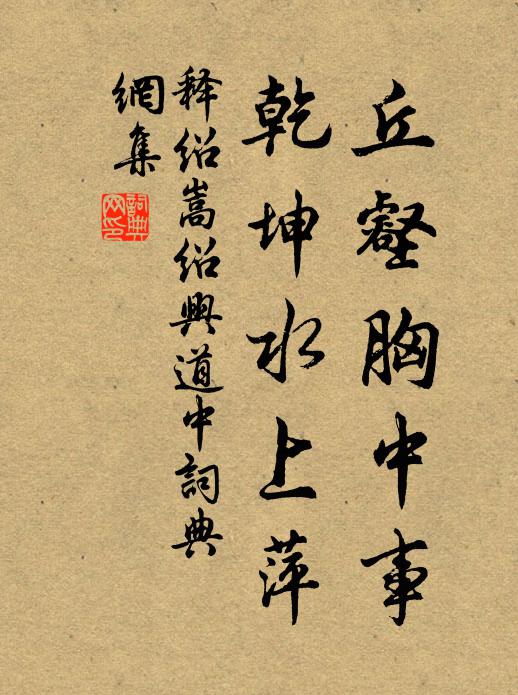 丘壑胸中事
乾坤水上萍
释绍嵩绍興道中詞典
網集
詞典网印